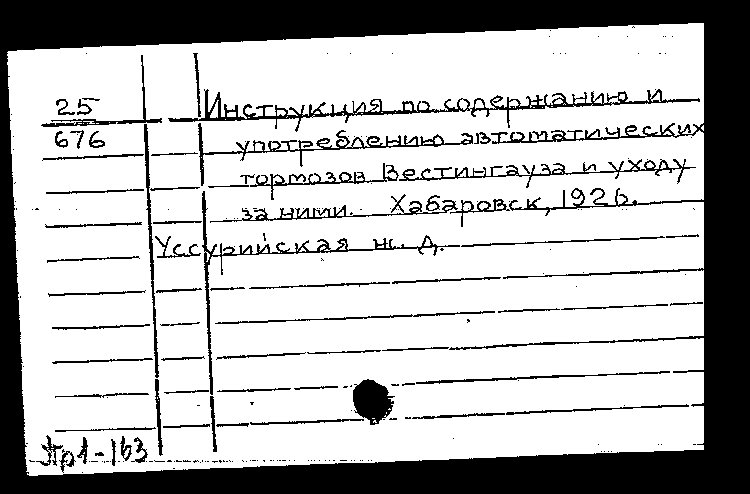 25
676
Инструкция по содержанию и
употреблению автоматических
тормозов Вестингауза и уходу
за ними. Хабаровск, 1926.
Уссурийская ж. д.
Пр1-163